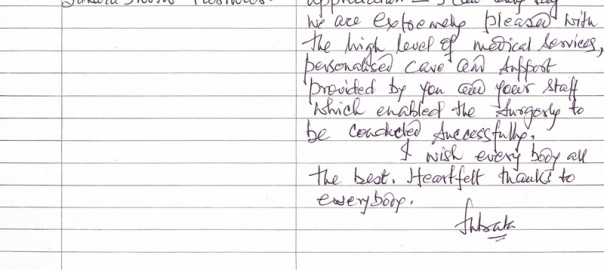 we are extremely pleased with
the high level of medical services,
personalised care and support
provided by you and your staff
which enabled the surgery to
be conducted successfully.
I wish every body all
the best. Heartfelt thanks to
everybody.